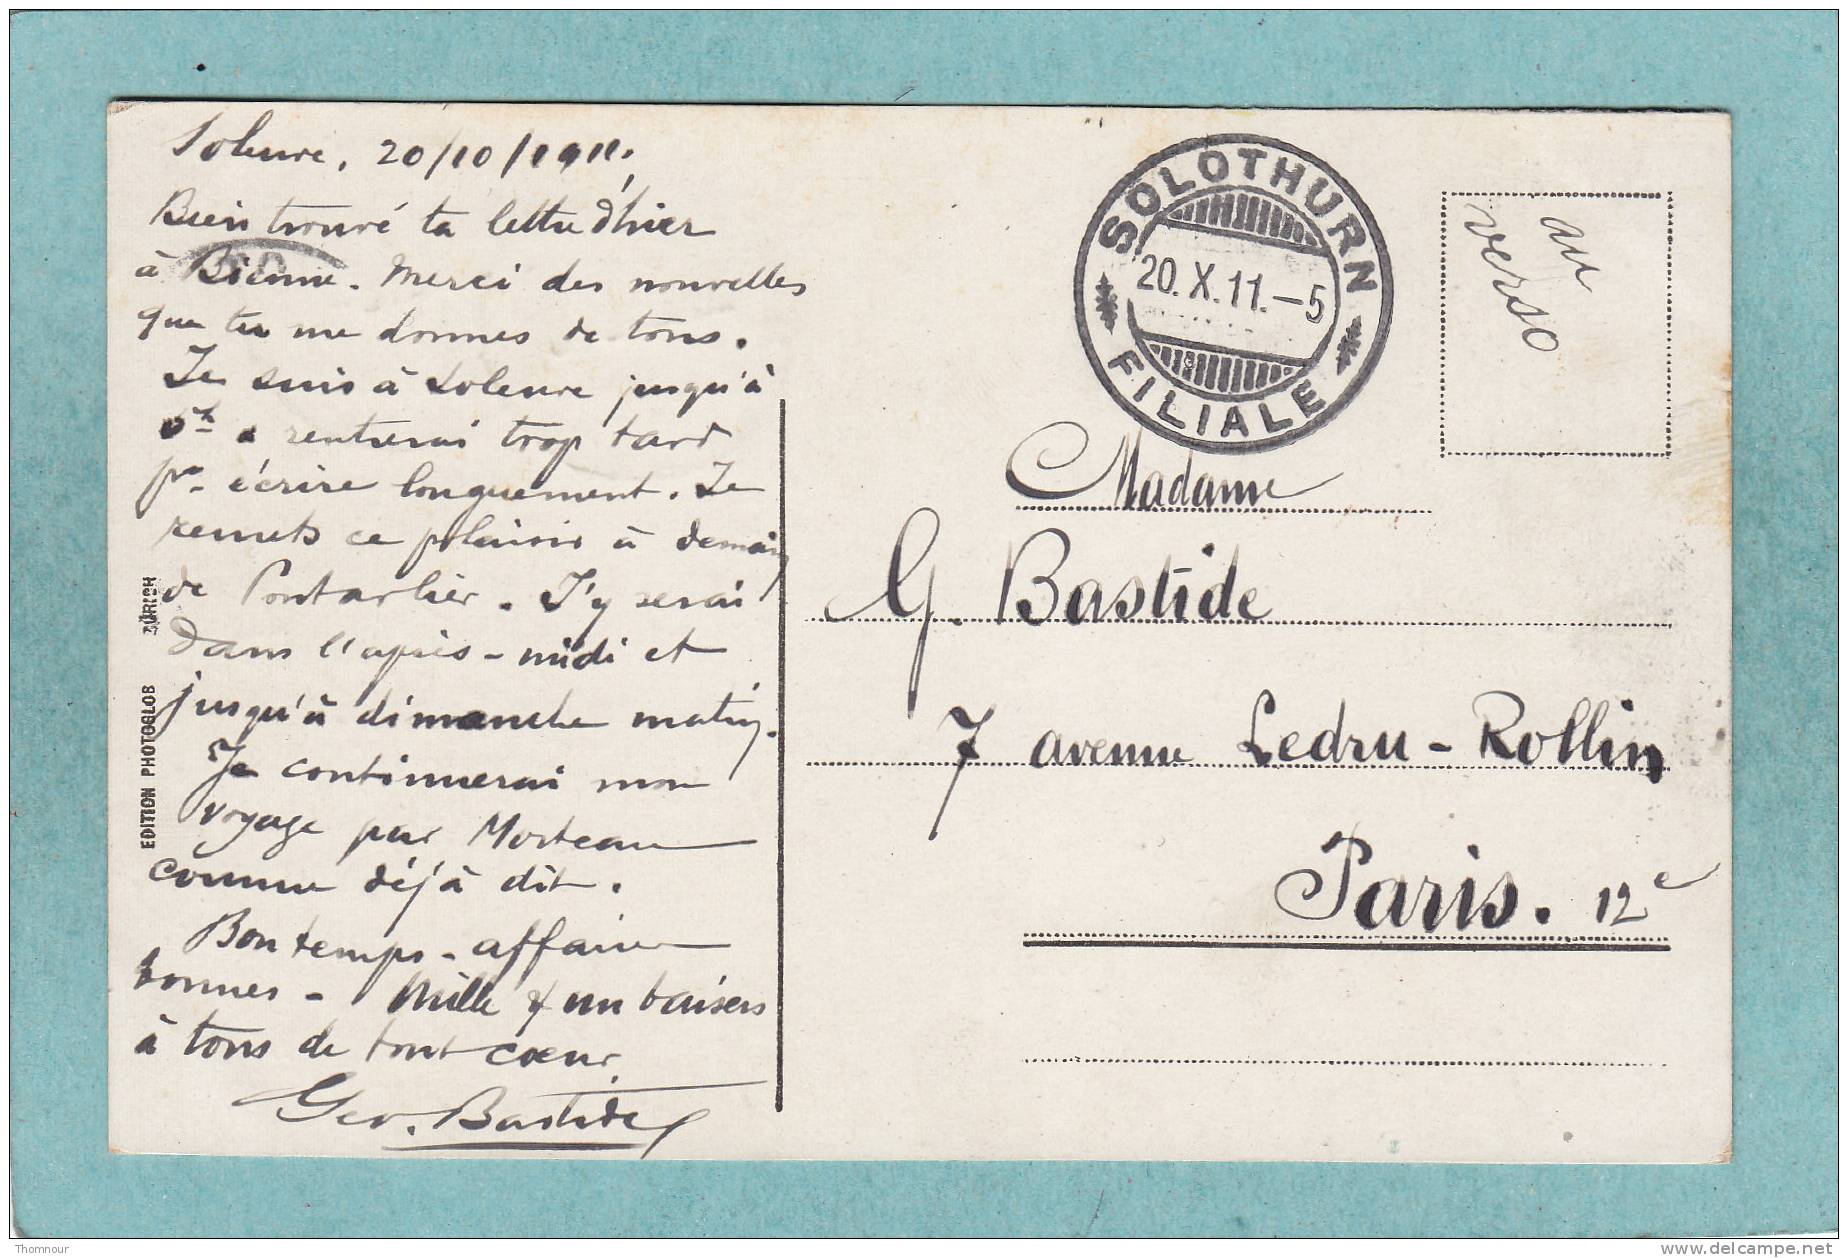 Soleure, 20/10/1911.
Bien trouvé ta lettre d'hier
à Bienne. Merci des nouvelles
que tu me donnes de tous.
Je suis à Soleure jusqu'à
5h & rentrerai trop tard
pr. écrire longuement. Je
remets ce plaisir à demain
de Pontarlier. J'y serai
dans l'après-midi et
jusqu'à dimanche matin.
Je continuerai mon
voyage par Morteau
comme déjà dit.
Bon temps - affaires
bonnes - Mille & un baisers
à tous de tout cœur.
Geo. Bastide
EDITION PHOTOGLOB ZÜRICH
SOLOTHURN
20.X.11.-5
FILIALE
au
verso
Madame
G. Bastide
7 avenue Ledru-Rollin
Paris. 12e
Thomnour
www.delcampe.net